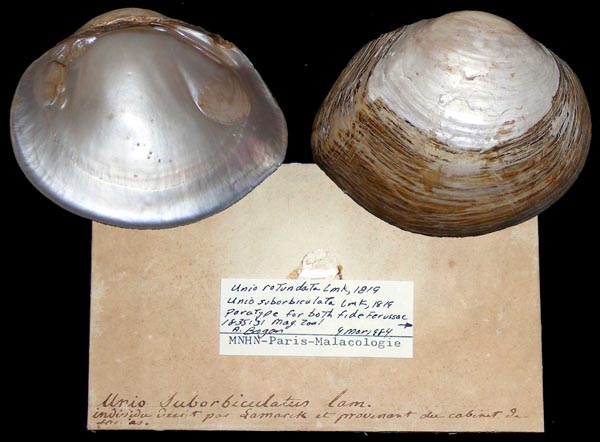 Unio rotundata Lmk, 1819
Unio suborbiculata Lmk, 1819
paratype for both fide Ferussac
1835:31 Mag. Zool
A. Bogan 9 Mar, 1984
MNHN-Paris-Malacologie
Unio Suborbiculatus lam.
individu décrit par Lamarck et provenant du cabinet de